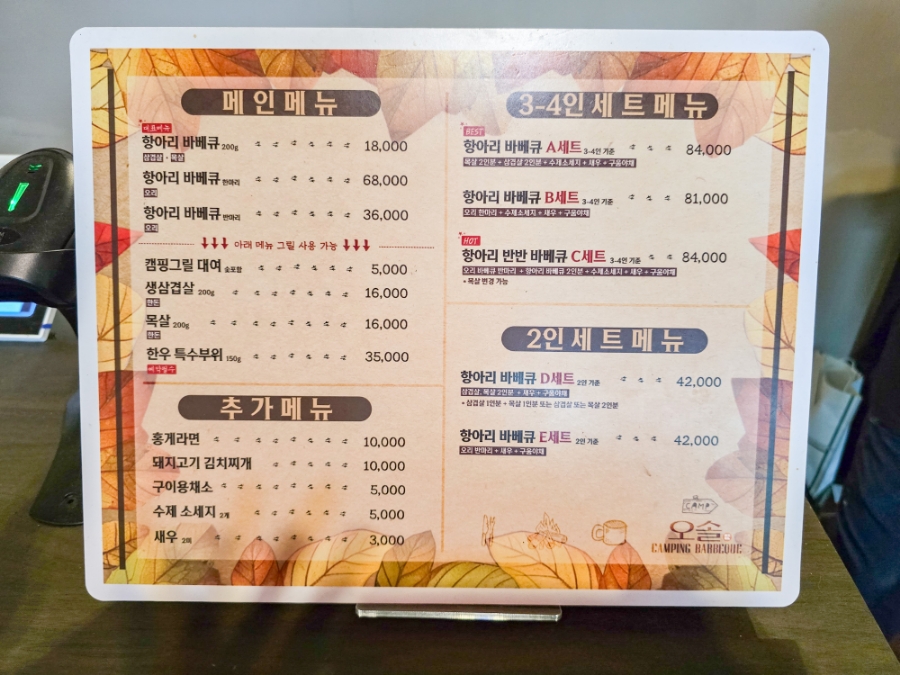 메인메뉴
대표메뉴
항아리 바베큐 200g 18,000
삼겹살 · 목살
항아리 바베큐 한마리 68,000
오리
항아리 바베큐 반마리 36,000
오리
아래 메뉴 그릴 사용 가능
캠핑그릴 대여 숯포함 5,000
생삼겹살 200g 16,000
한돈
목살 200g 16,000
한돈
한우 특수부위 150g 35,000
예약필수
추가메뉴
홍게라면 10,000
돼지고기 김치찌개 10,000
구이용채소 5,000
수제 소세지 2개 5,000
새우 2미 3,000
3-4인세트메뉴
BEST
항아리 바베큐 A세트 3-4인 기준 84,000
목살 2인분 + 삼겹살 2인분 + 수제소세지 + 새우 + 구움야채
항아리 바베큐 B세트 3-4인 기준 81,000
오리 한마리 + 수제소세지 + 새우 + 구움야채
HOT
항아리 반반 바베큐 C세트 3-4인 기준 84,000
오리 바베큐 반마리 + 항아리 바베큐 2인분 + 수제소세지 + 새우 + 구움야채
* 목살 변경 가능
2인세트메뉴
항아리 바베큐 D세트 2인 기준 42,000
삼겹살, 목살 2인분 + 새우 + 구움야채
* 삼겹살 1인분 + 목살 1인분 또는 삼겹살 또는 목살 2인분
항아리 바베큐 E세트 2인 기준 42,000
오리 반마리 + 새우 + 구움야채
CAMP
오솔
CAMPING BARBECUE